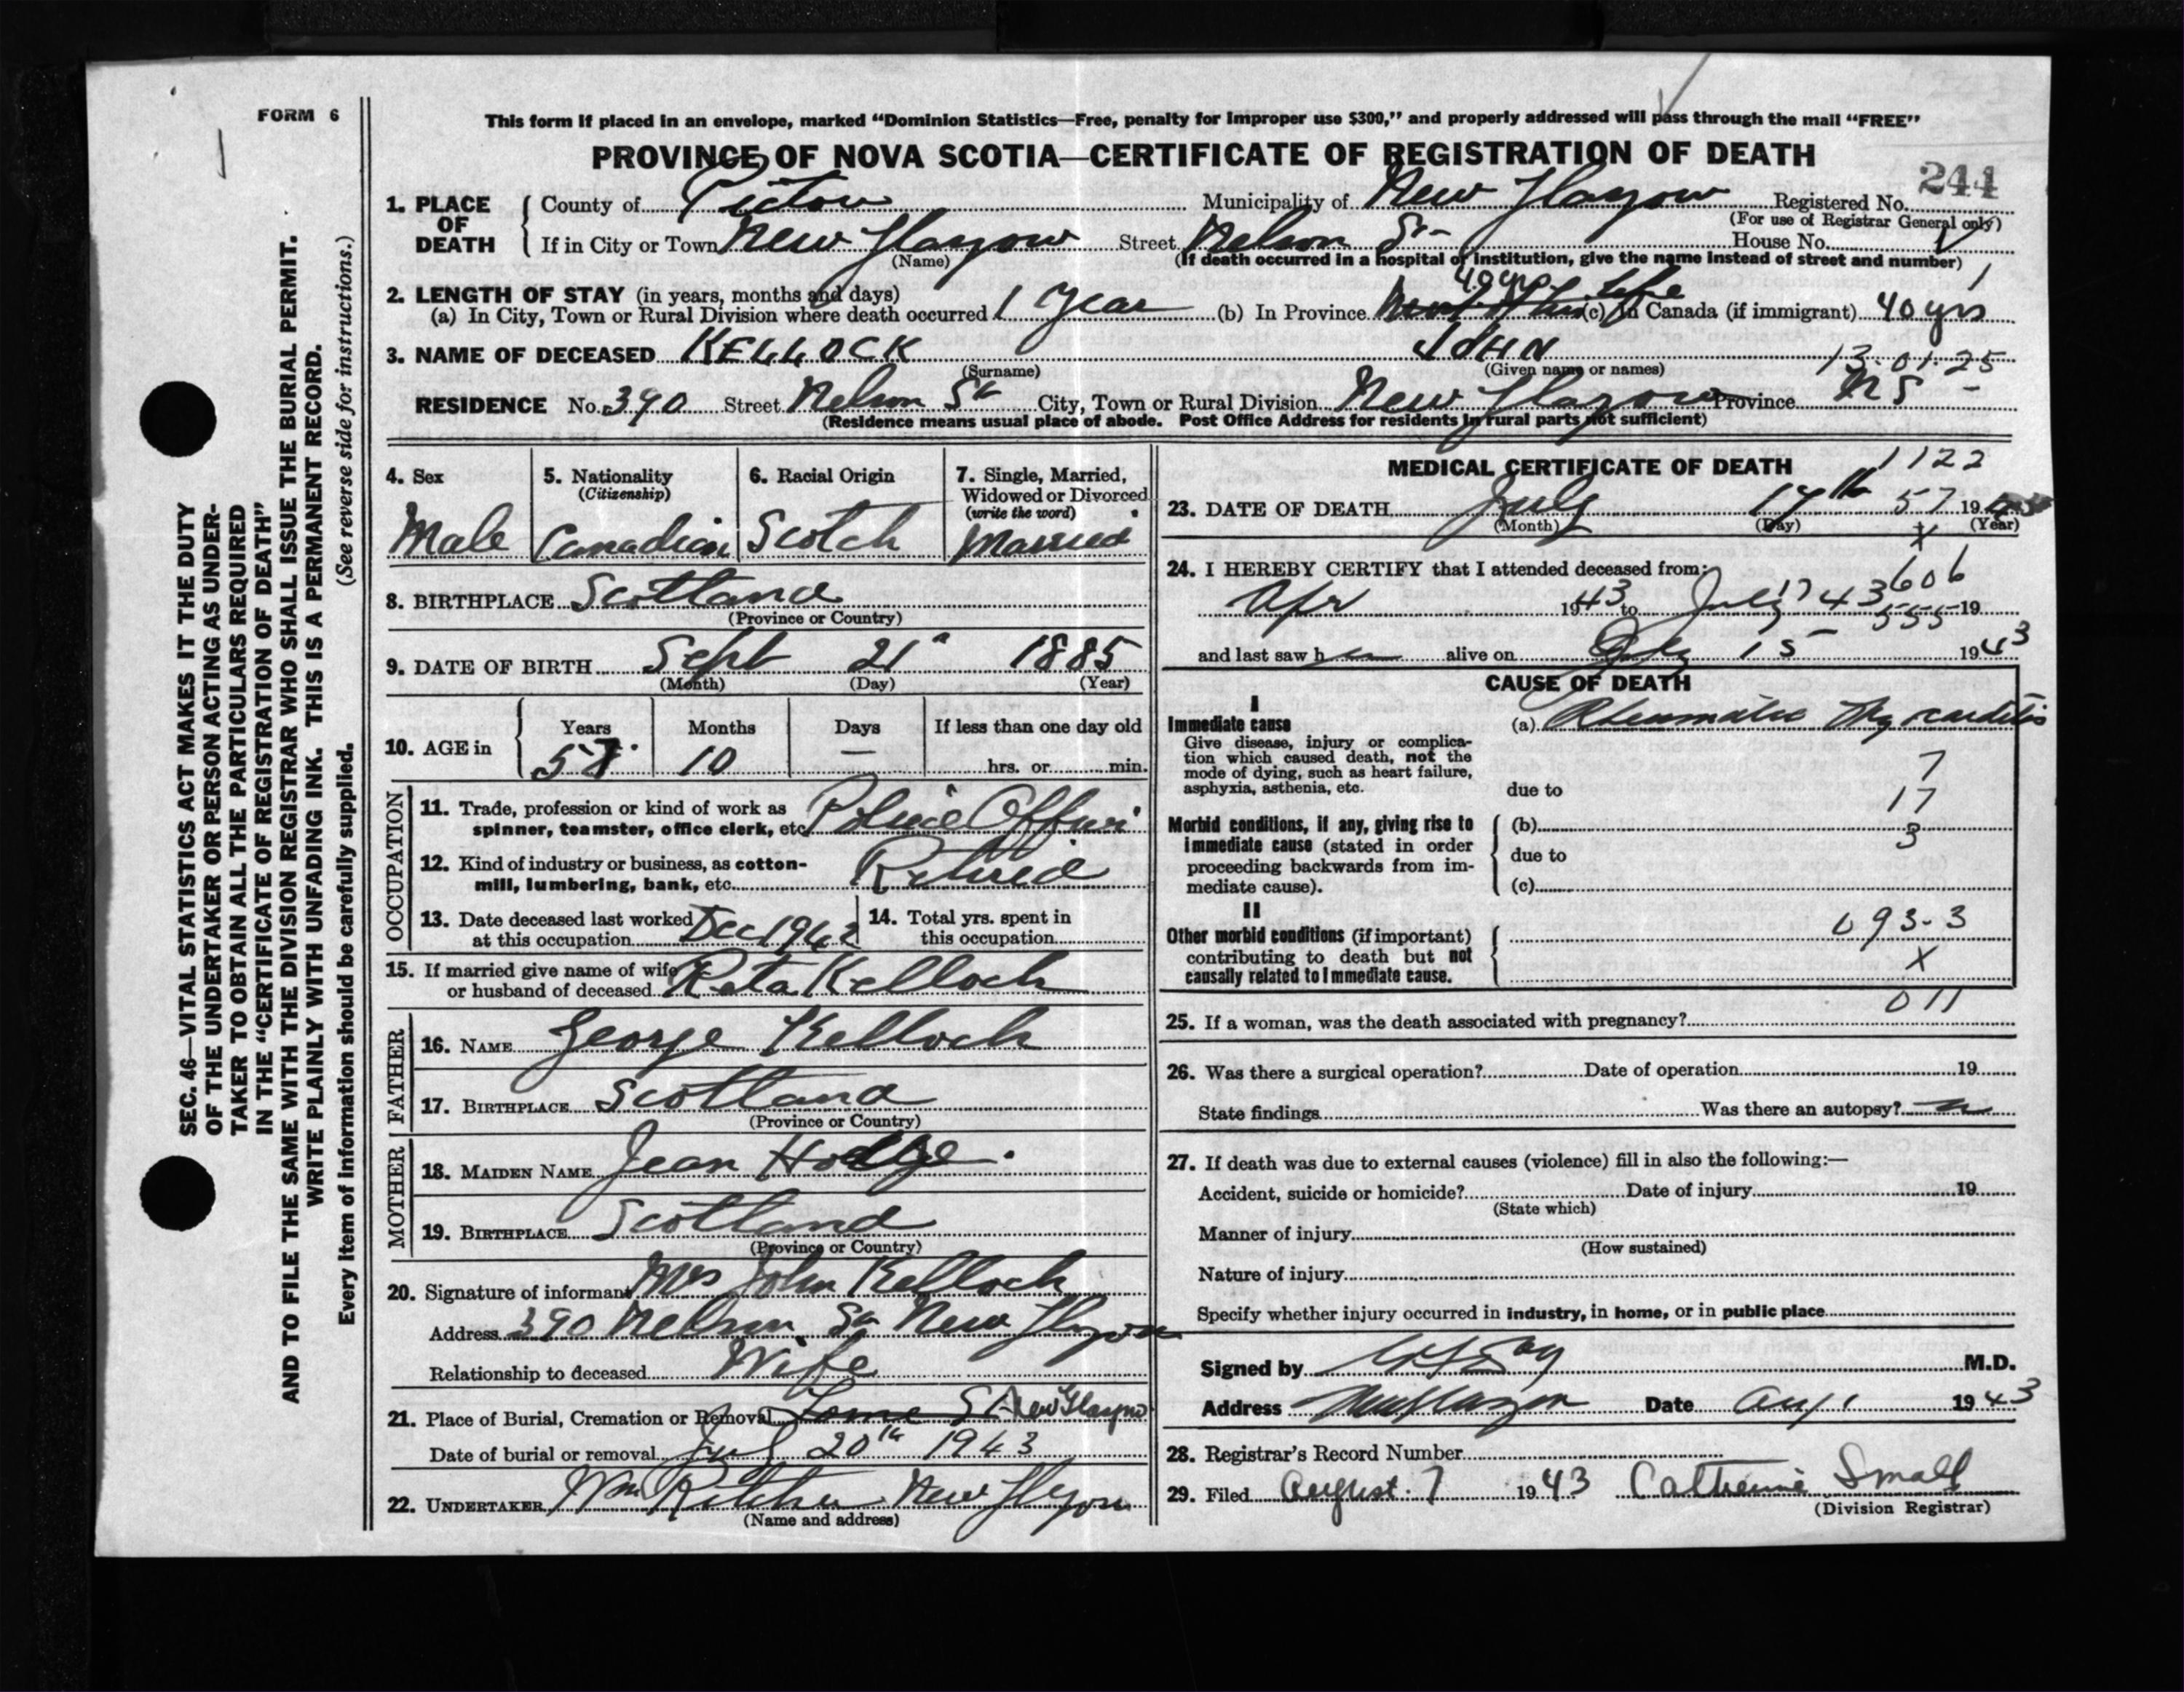 FORM 6
This form if placed in an envelope, marked “Dominion Statistics—Free, penalty for improper use $300,” and properly addressed will pass through the mail “FREE”
PROVINCE OF NOVA SCOTIA—CERTIFICATE OF REGISTRATION OF DEATH
244
1. PLACE OF DEATH { County of Pictou Municipality of New Glasgow Registered No.
(For use of Registrar General only)
If in City or Town New Glasgow Street Nelson St- House No.
(Name)
(If death occurred in a hospital of institution, give the name instead of street and number)
2. LENGTH OF STAY (in years, months and days) 40 yrs
(a) In City, Town or Rural Division where death occurred 1 Year (b) In Province (c) In Canada (if immigrant) 40 yrs
3. NAME OF DECEASED KELLOCK JOHN 13-01-25
(Surname) (Given name or names)
RESIDENCE No. 390 Street Nelson St City, Town or Rural Division New Glasgow Province NS
(Residence means usual place of abode. Post Office Address for residents in rural parts not sufficient)
4. Sex
Male
5. Nationality
(Citizenship)
Canadian
6. Racial Origin
Scotch
7. Single, Married,
Widowed or Divorced
(write the word)
Married
8. BIRTHPLACE Scotland
(Province or Country)
9. DATE OF BIRTH Sept 21 1885
(Month) (Day) (Year)
10. AGE in { Years Months Days If less than one day old
57 10 — hrs. or min.
OCCUPATION
11. Trade, profession or kind of work as
spinner, teamster, office clerk, etc. Police Officer
12. Kind of industry or business, as cotton-
mill, lumbering, bank, etc. Retired
13. Date deceased last worked
at this occupation Dec 1942
14. Total yrs. spent in
this occupation
15. If married give name of wife
or husband of deceased Reta Kelloch
FATHER
16. NAME George Kelloch
17. BIRTHPLACE Scotland
(Province or Country)
MOTHER
18. MAIDEN NAME Jean Hodge.
19. BIRTHPLACE Scotland
(Province or Country)
20. Signature of informant Mrs John Kelloch
Address 390 Nelson St New Glasgow
Relationship to deceased Wife
21. Place of Burial, Cremation or Removal St New Glasgow
Date of burial or removal July 20th 1943
22. UNDERTAKER Wm Ritchie New Glasgow
(Name and address)
MEDICAL CERTIFICATE OF DEATH 1122
23. DATE OF DEATH July 17th 57 19
(Month) (Day) (Year)
X
24. I HEREBY CERTIFY that I attended deceased from: 606
Apr 1943 to July 17 43 555 19
and last saw h alive on July 15 1943
CAUSE OF DEATH
I
Immediate cause
Give disease, injury or complica-
tion which caused death, not the
mode of dying, such as heart failure,
asphyxia, asthenia, etc.
(a) Rheumatic Myocarditis
7
due to 17
Morbid conditions, if any, giving rise to
immediate cause (stated in order
proceeding backwards from im-
mediate cause).
(b) 3
due to
(c)
II
Other morbid conditions (if important)
contributing to death but not
causally related to immediate cause.
093-3
X
011
25. If a woman, was the death associated with pregnancy?
26. Was there a surgical operation? Date of operation 19
State findings Was there an autopsy?
27. If death was due to external causes (violence) fill in also the following:—
Accident, suicide or homicide? Date of injury 19
(State which)
Manner of injury
(How sustained)
Nature of injury
Specify whether injury occurred in industry, in home, or in public place
Signed by M.D.
Address New Glasgow Date Aug 1 1943
28. Registrar's Record Number
29. Filed August 7 1943 Catherine Small
(Division Registrar)
SEC. 46—VITAL STATISTICS ACT MAKES IT THE DUTY
OF THE UNDERTAKER OR PERSON ACTING AS UNDER-
TAKER TO OBTAIN ALL THE PARTICULARS REQUIRED
IN THE “CERTIFICATE OF REGISTRATION OF DEATH”
AND TO FILE THE SAME WITH THE DIVISION REGISTRAR WHO SHALL ISSUE THE BURIAL PERMIT.
WRITE PLAINLY WITH UNFADING INK. THIS IS A PERMANENT RECORD.
Every item of information should be carefully supplied. (See reverse side for instructions.)